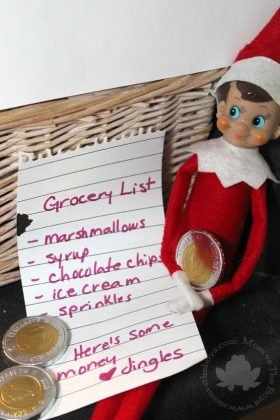 Grocery List
- marshmallows
- syrup
- chocolate chips
- ice cream
- sprinkles
Here's some
money
♥ dingles